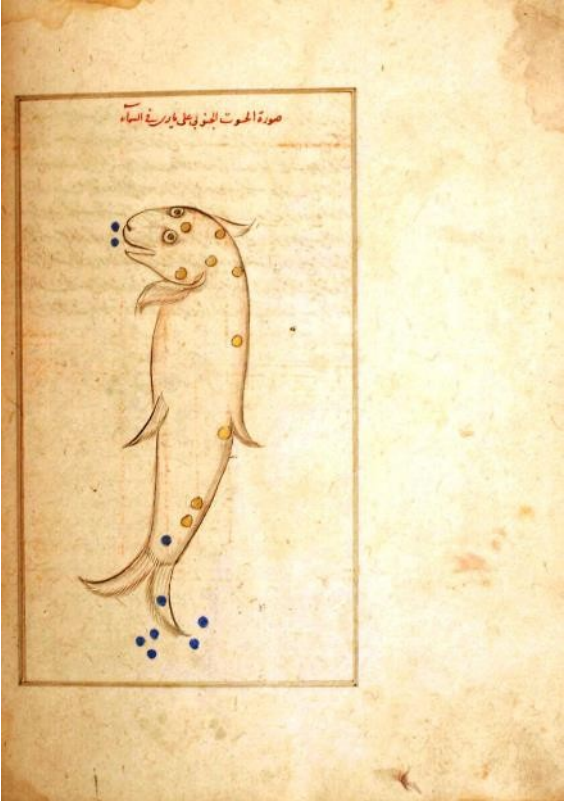 صورة الحوت الجنوبي على ما يرى في السماء